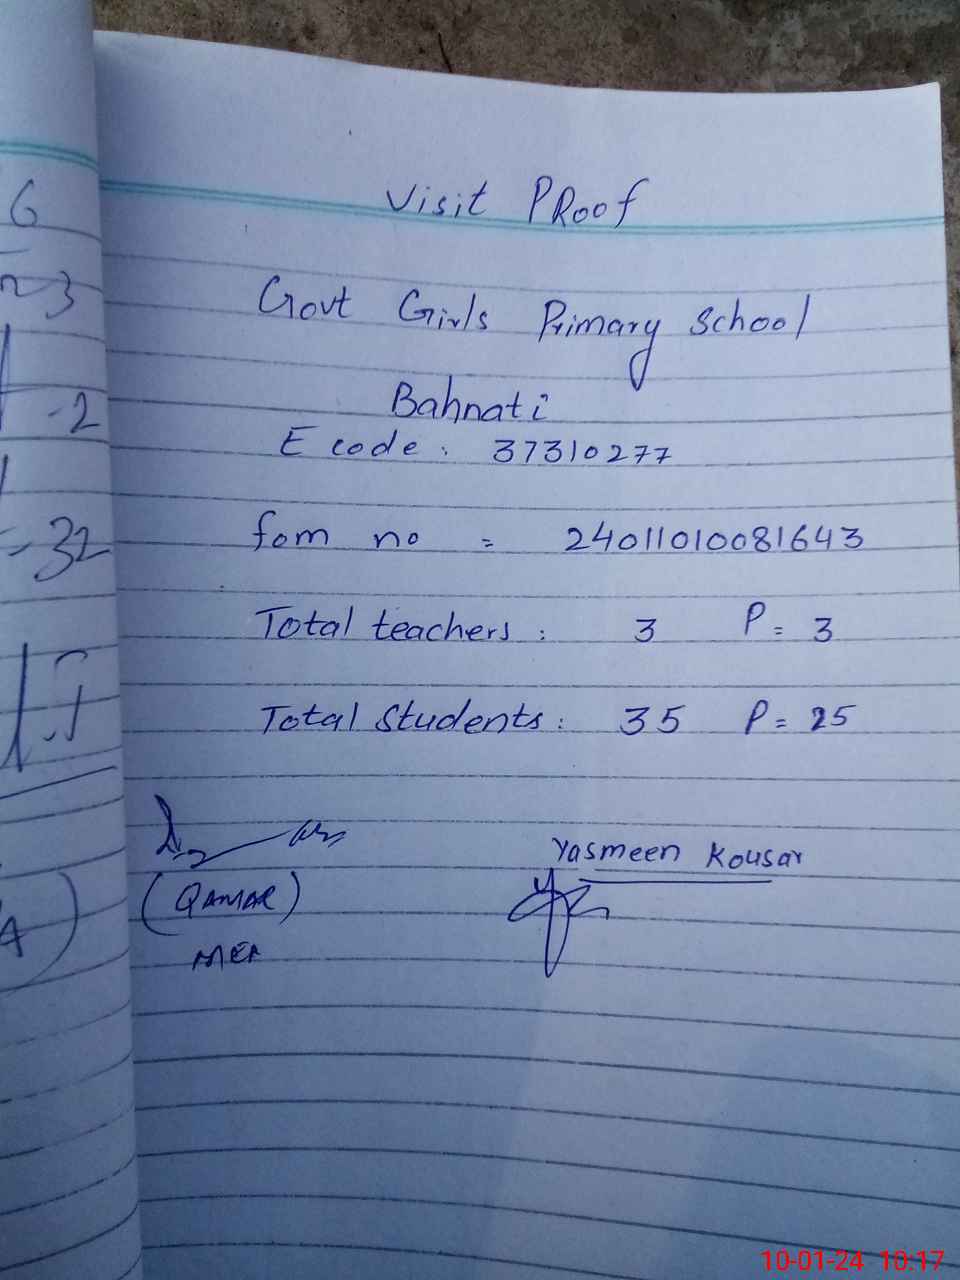 Visit PRoof
Govt Girls Primary School
Bahnati
E code : 37310277
fom no = 24011010081643
Total teachers : 3 P = 3
Total Students : 35 P = 25
(QAMAR)
MEA
Yasmeen Kousar
6
3
-2
-32
10-01-24 10:17